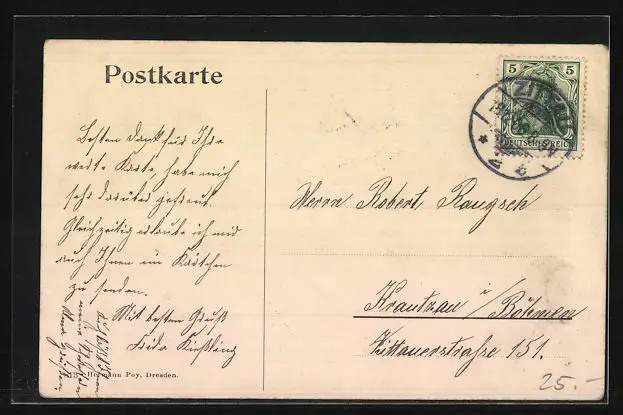 Postkarte
5 5
DEUTSCHES REICH
ZITTAU
Besten Dank für Ihre
werte Karte, habe mich
sehr darüber gefreut.
Gleichzeitig erlaube ich mir
auch Ihnen ein Kärtchen
zu senden.
Mit besten Gruß
Frida Kießling
Herrn Robert Raugsch
Krautzau i/Böhmen
Zittauerstraße 151.
Hermann Poy, Dresden.
25.-